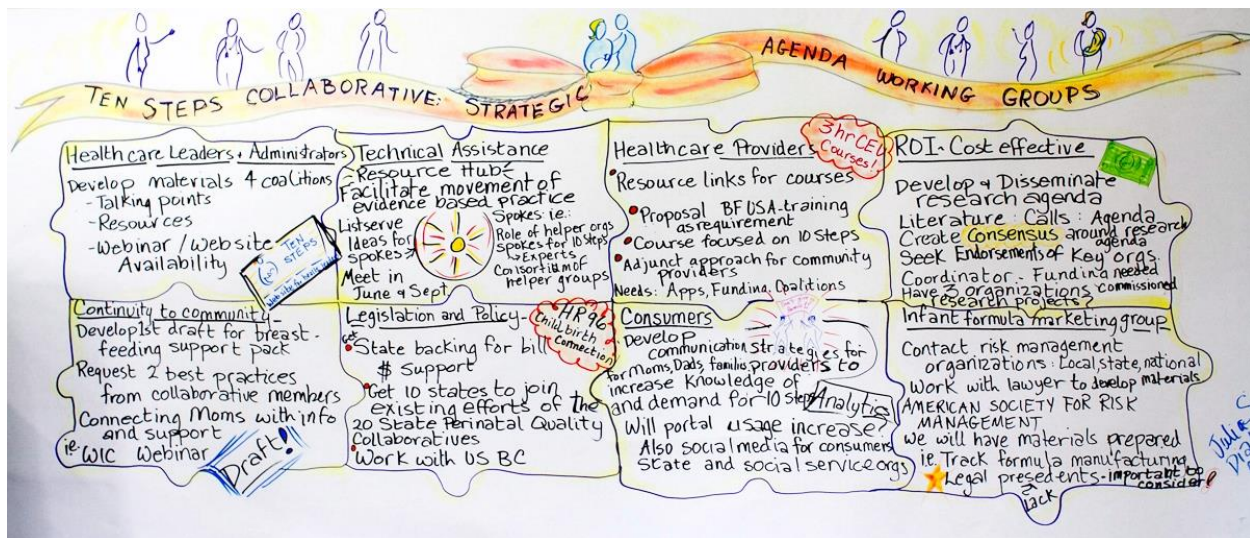 TEN STEPS COLLABORATIVE: STRATEGIC
AGENDA WORKING GROUPS
Healthcare Leaders + Administrators
Develop materials 4 coalitions
- Talking points
- Resources
- Webinar / Website
Availability
TEN
STEPS
Technical Assistance
- Resource Hub
Facilitate movement of
evidence based practice
Listserve
Ideas for
spokes →
Meet in
June & Sept.
Spokes: i.e.:
Role of helper orgs
spokes for 10 Steps
↳ Experts
Consortium of
helper groups
Healthcare Providers
3 hr CEU
Courses!
Resource links for courses
Proposal BFUSA-training
as requirement
Course focused on 10 Steps
Adjunct approach for community
providers
Needs: Apps, Funding, Coalitions
ROI - Cost effective
Develop & Disseminate
research agenda
Literature: Calls: Agenda
Create Consensus around research
agenda
Seek Endorsements of Key orgs.
Coordinator - Funding needed
Have 3 organizations commissioned
research projects?
Continuity to community -
Develop 1st draft for breast-
feeding support pack
Request 2 best practices
from collaborative members
Connecting Moms with info
and support
ie. WIC Webinar
Draft!
Legislation and Policy -
HR 96
Childbirth
Connection
Get
State backing for bill
$ Support
Get 10 states to join
existing efforts of the
20 State Perinatal Quality
Collaboratives
Work with US BC
Consumers
Develop
communication strategies for
for Moms, Dads, families, providers to
increase knowledge of
and demand for 10 Steps
Analytics
Will portal usage increase?
Also social media for consumers
State and social service orgs
Infant formula marketing group
Contact risk management
organizations: Local, state, national
Work with lawyer to develop materials
AMERICAN SOCIETY FOR RISK
MANAGEMENT
We will have materials prepared
ie. Track formula manufacturing
Legal presedents - important to
consider!
Lack
Julia